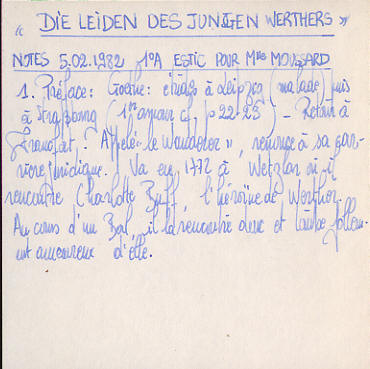 « DIE LEIDEN DES JUNGEN WERTHERS »
NOTES 5.02.1982 1°A ESTIC POUR Mme MOUSSARD
1. Préface: Goethe: étudie à Leipzig (malade) puis
à Strasbourg (1er amour cf. p 22-23) - Retour à
Francfort. Appelé "le Wanderer", renonce à sa car-
rière juridique. Va en 1772 à Wetzlar où il
rencontre Charlotte Buff, l'héroïne de Werther.
Au cours d'un Bal, il la rencontre donc et tombe follem-
ent amoureux d'elle.